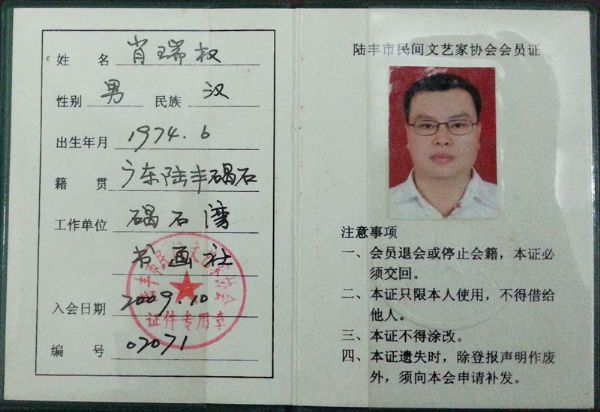 姓 名 肖瑞权
性别 男 民族 汉
出生年月 1974.6
籍 贯 广东陆丰碣石
工作单位 碣石湾
书画社
入会日期 2009.10
编 号 02071
陆丰市民间文艺家协会
证件专用章
陆丰市民间文艺家协会会员证
注意事项
一、会员退会或停止会籍,本证必
须交回。
二、本证只限本人使用,不得借给
他人。
三、本证不得涂改。
四、本证遗失时,除登报声明作废
外,须向本会申请补发。